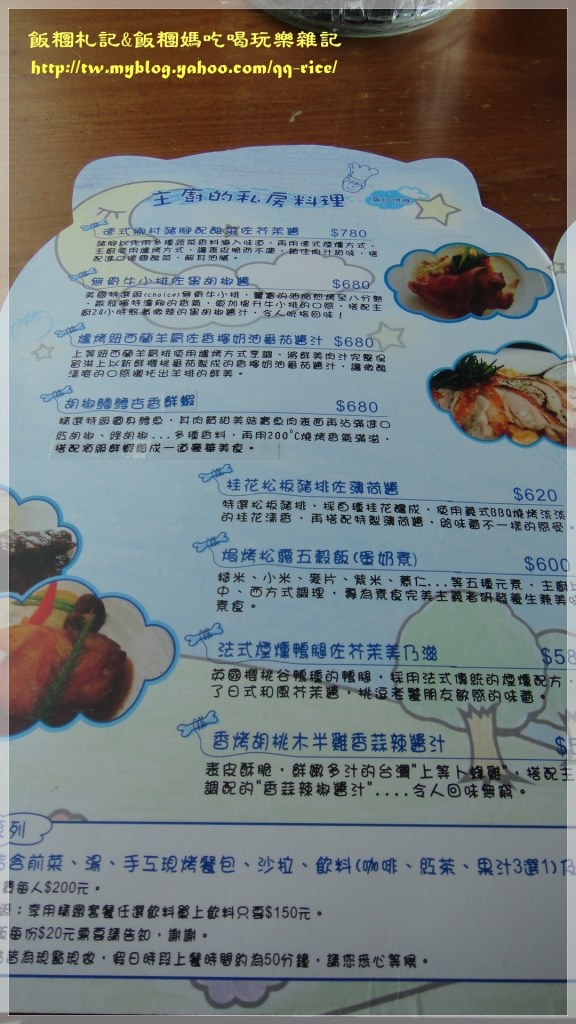 飯糰札記&飯糰媽吃喝玩樂雜記
http://tw.myblog.yahoo.com/qq-rice/
主廚的私房料理
德式鄉村豬腳配酸菜佐芥茉醬 $780
無骨牛小排佐黑胡椒醬 $680
美國特選級(choice)無骨牛小排，豐富的油脂煎烤至八分熟
廚24小時熬煮微辣的黑胡椒醬汁，令人吮指回味！
爐烤紐西蘭羊肩佐香檸奶油番茄醬汁 $680
上等紐西蘭羊肩排使用爐烤方式烹調，將鮮美肉汁完整保
留淋上以新鮮櫻桃番茄製成的香檸奶油番茄醬汁，讓微酸
清爽的口感襯托出羊排的鮮美。
胡椒鱷鱈杏香鮮蝦 $680
精選特級圓身鱈魚，其肉質甜美結實魚肉表面再沾滿進口
紅胡椒、綠胡椒...多種香料，再用200°C燒烤香氣滿溢，
搭配海鮮蝦組成一道豪華美食。
桂花松板豬排佐薄荷醬 $620
特選松板豬排，採自種桂花釀成，使用義式BBQ燒烤淡淡
的桂花清香，再搭配特製薄荷醬，給味蕾不一樣的感受。
焗烤松露五穀飯(蛋奶素) $600
糙米、小米、麥片、紫米、薏仁...等五種元素，主廚
中、西方式調理，專為素食完美主義者研發養生兼美味
素食。
法式煙燻鴨腿佐芥茉美乃滋 $58
英國櫻桃谷鴨種的鴨腿，採用法式傳統的煙燻配方，
了日式和風芥茉醬，挑逗老饕朋友敏感的味蕾。
香烤胡桃木半雞香蒜辣醬汁 $5
表皮酥脆，鮮嫩多汁的台灣"上等卜蜂雞"，搭配主
調配的"香蒜辣椒醬汁"....令人回味無窮。
系列
含前菜、湯、手工現烤餐包、沙拉、飲料(咖啡、紅茶、果汁3選1)及
費每人$200元。
：享用精緻套餐任選飲料單上飲料只要$150元。
飯每份$20元需要請告知，謝謝。
皆為現點現做，假日時段上餐時間約為50分鐘，請您悉心等候。